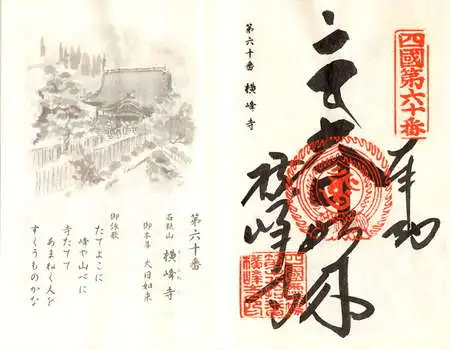 四國第六十番
奉納
横峰寺
第六十番 横峰寺
第六十番
石鈇山 横峰寺
御本尊 大日如来
御詠歌
たてよこに
峰や山べに
寺たてて
あまねく人を
すくうものかな